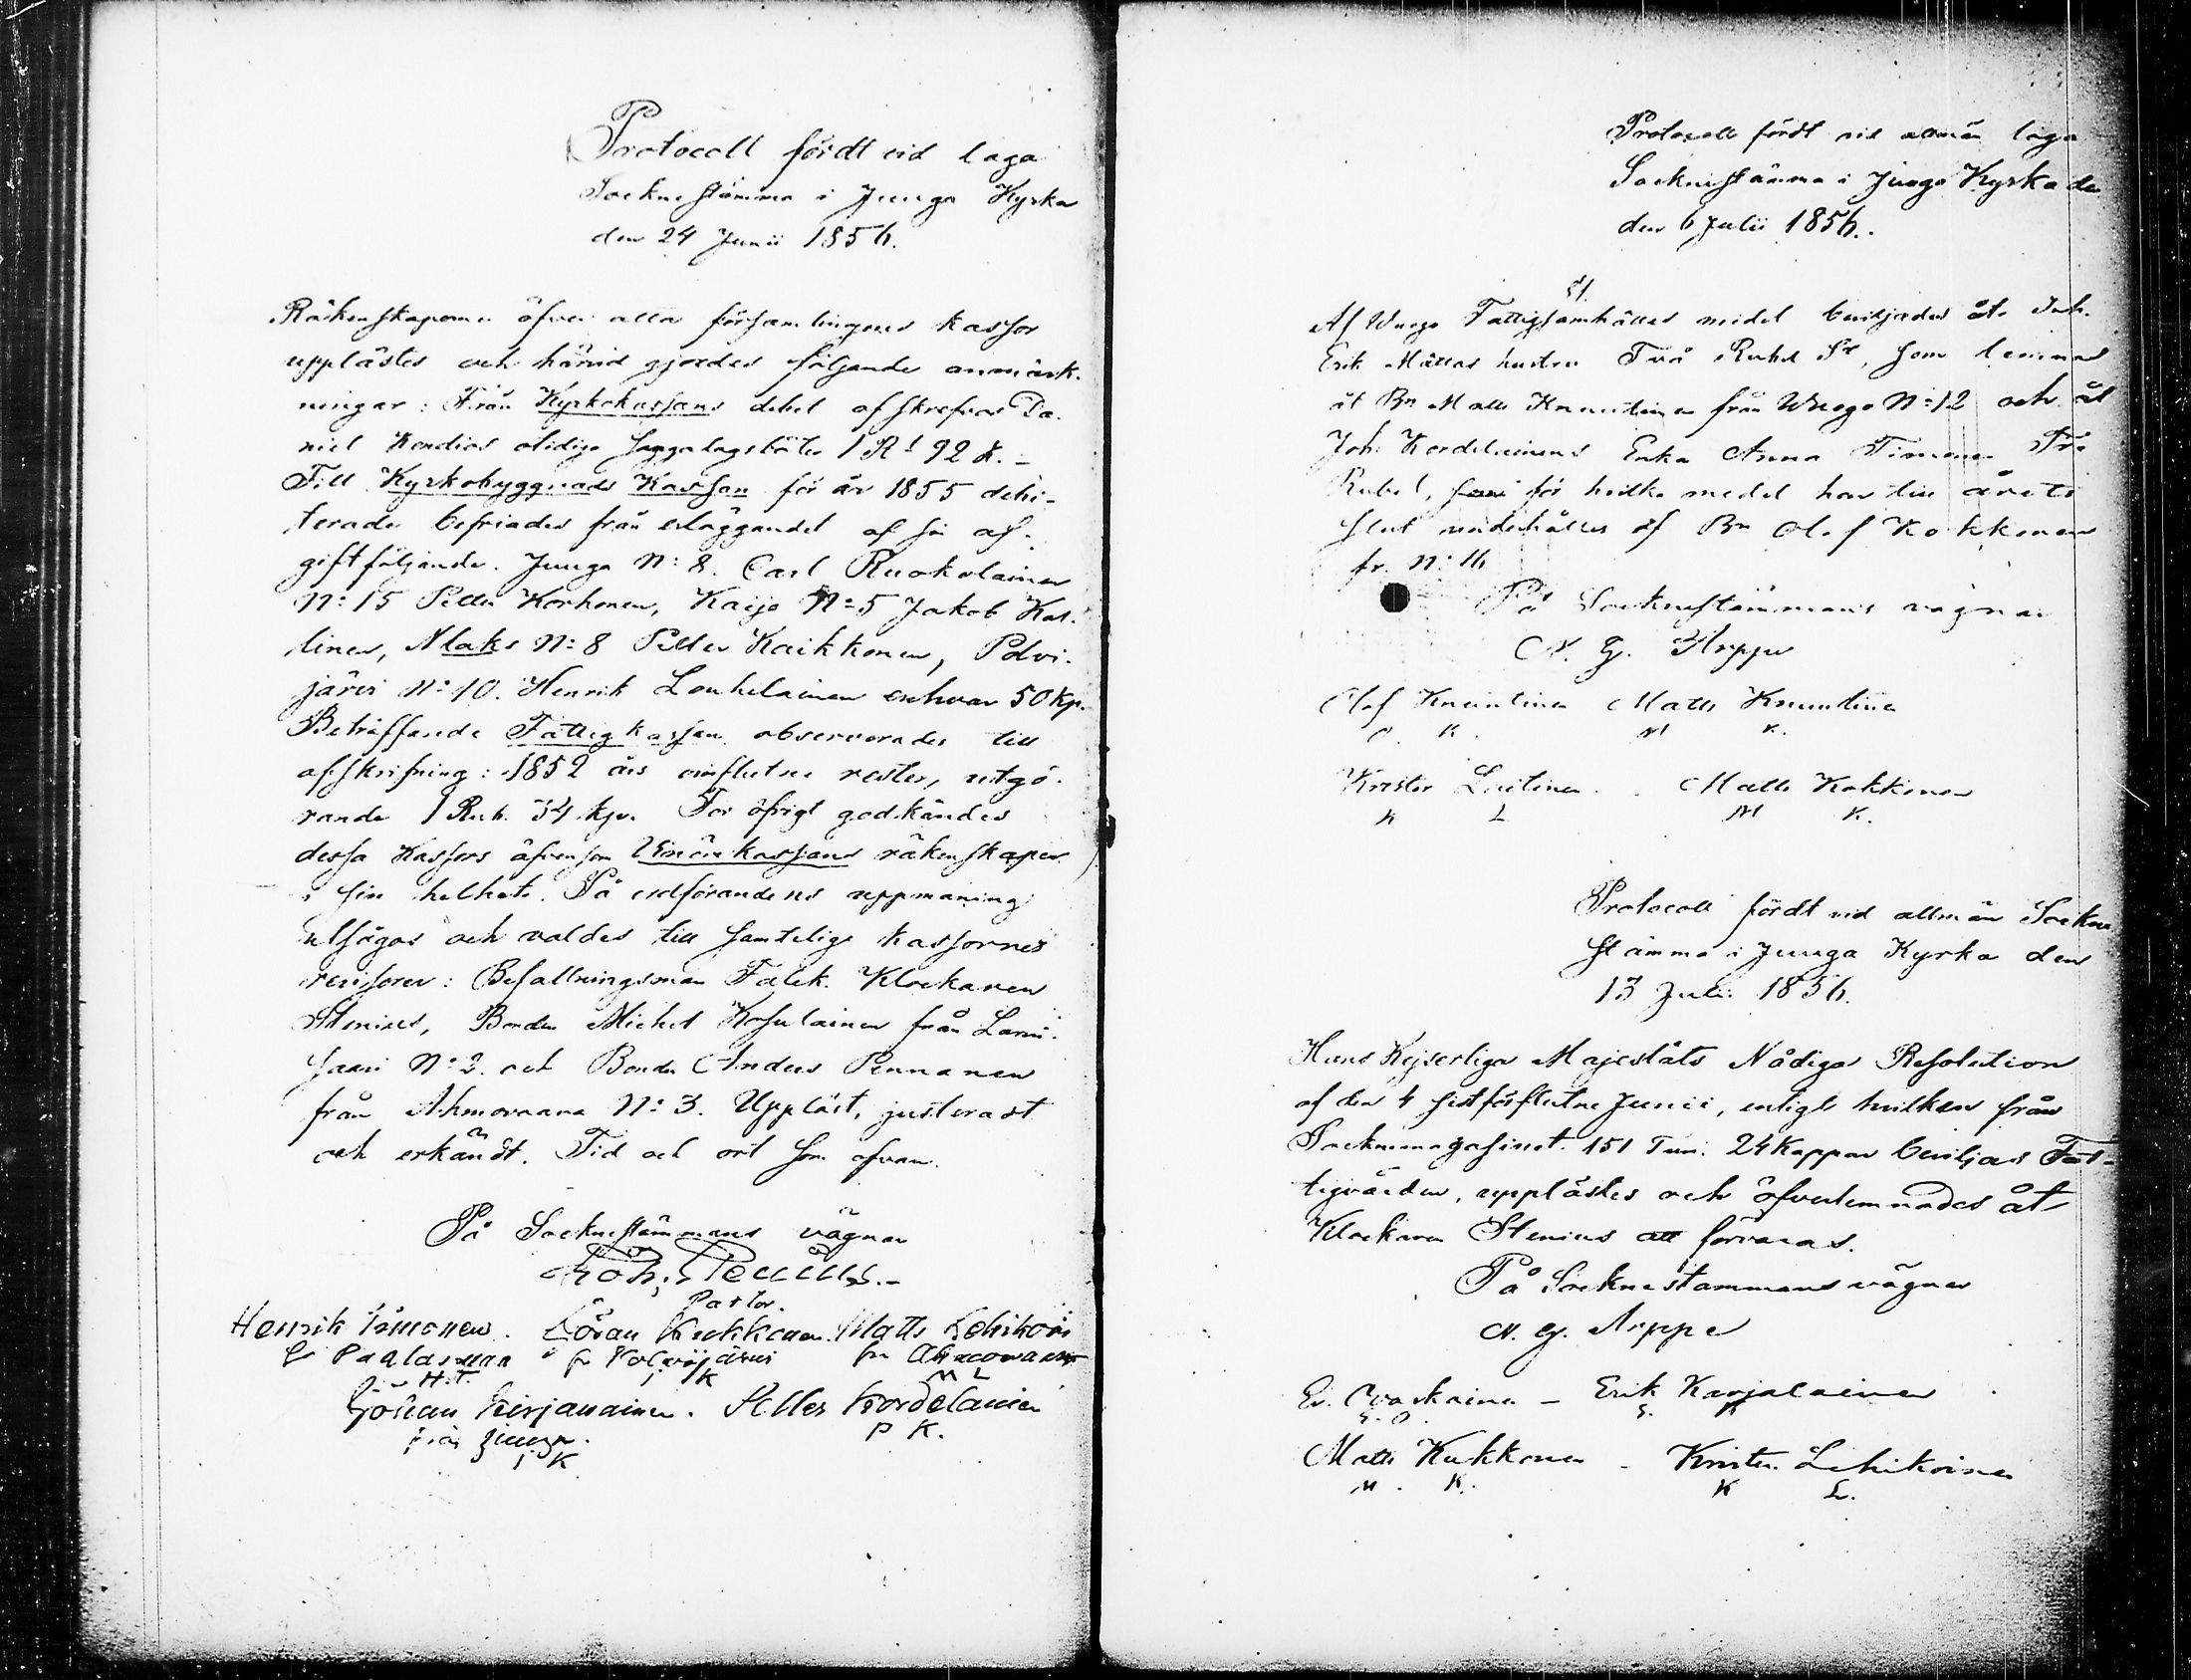 Protocoll fördt vid laga
Sockne stämma i Juuga Kyrka
den 24 Junii 1856.
Räkenskaperna öfver alla församlingens kassor
upplästes och härvid gjordes följande anmärk-
ningar: Från Kyrkokassans debet afskrefvos Da-
niel olidige 1 R 92 k. -
Till Kyrkobyggnads Kassan för år 1855 debi-
terade befriades från erläggandet af sin af-
gift följande. Juuga N: 8. Carl Ruokolainen
N: 15 Petter Korhonen, Kaijo N: 5 Jakob
N: 8 Petter Kaikkonen, Polvi-
järvi N: 10. Henrik Louhelainen enhvar 50 kp.
Beträffande Fattigkassan observerades till
afskrifning: 1852 års oinflutne rester, utgö-
rande 1 Rub. 34 kp. For öfrigt godkändes
dessa Kassors äfvensom räkenskaper
i sin helhet. På ordförandens uppmaning
utsågos och valdes till samtelige kassornes
revisorer: Befallningsman Falck. Klockaren
Stenius, Bonden Michel Kosulainen från Larin-
saari N: 2. och Bonden Anders Pennanen
från Ahmovaara N: 3. Uppläst, justeradt
och erkändt. Tid och ort som ofvan.
På Socknestämmans vägnar
Joh. Stenius.-
Pastor.
Henrik Timonen. Göran Kukkonen. Matts Lehikoin
fr Paalasmaa fr Polvijärvi fr Ahmovaara
H.T. K M L
Göran Kirjavainen. Petter Kordelainen
från Juuga. P K.
K
Protocoll fördt vid allmän laga
Sockne stämma i Juuga Kyrka den
den 6 Julii 1856.
Af Wuogo Fattigsamhälles medel beviljades åt Inh.
Erik Måttas hustru Två Rubel Sr, som lemnas
åt Bn Matts Knuutinen från Wuogo N: 12 och åt
Joh. Kordelainens Enka Anna Timonen Tre
Rubel, för hvilka medel hon till årets
slut underhålles af Bn Olof Kokkonen
fr. N: 16
På Sockne stämmans vägnar
N. G. Arppe
Olof Knuutinen Matts Knuutinen
O. K. M K.
Krister Luitinen Matts Kokkonen
K L M K.
Protocoll fördt vid allmän Sockne
stämma i Juuga Kyrka den
13 Julii 1856.
Hans Kejserliga Majestäts Nådiga Resolution
af den 4 sistförflutne Junii, enligt hvilken från
Sockenmagasinet 151 Tun. 24 Kappar beviljas Fat-
tigvården, upplästes och öfverlemnades åt
Klockaren Stenius att förvaras.
På Sockne stämmans vägnar
N. G. Arppe
Er. Ovaskainen - Erik Karjalainen
E. O. E. K
Matts Kukkonen - Krister Lehikoinen
M. K. K L.